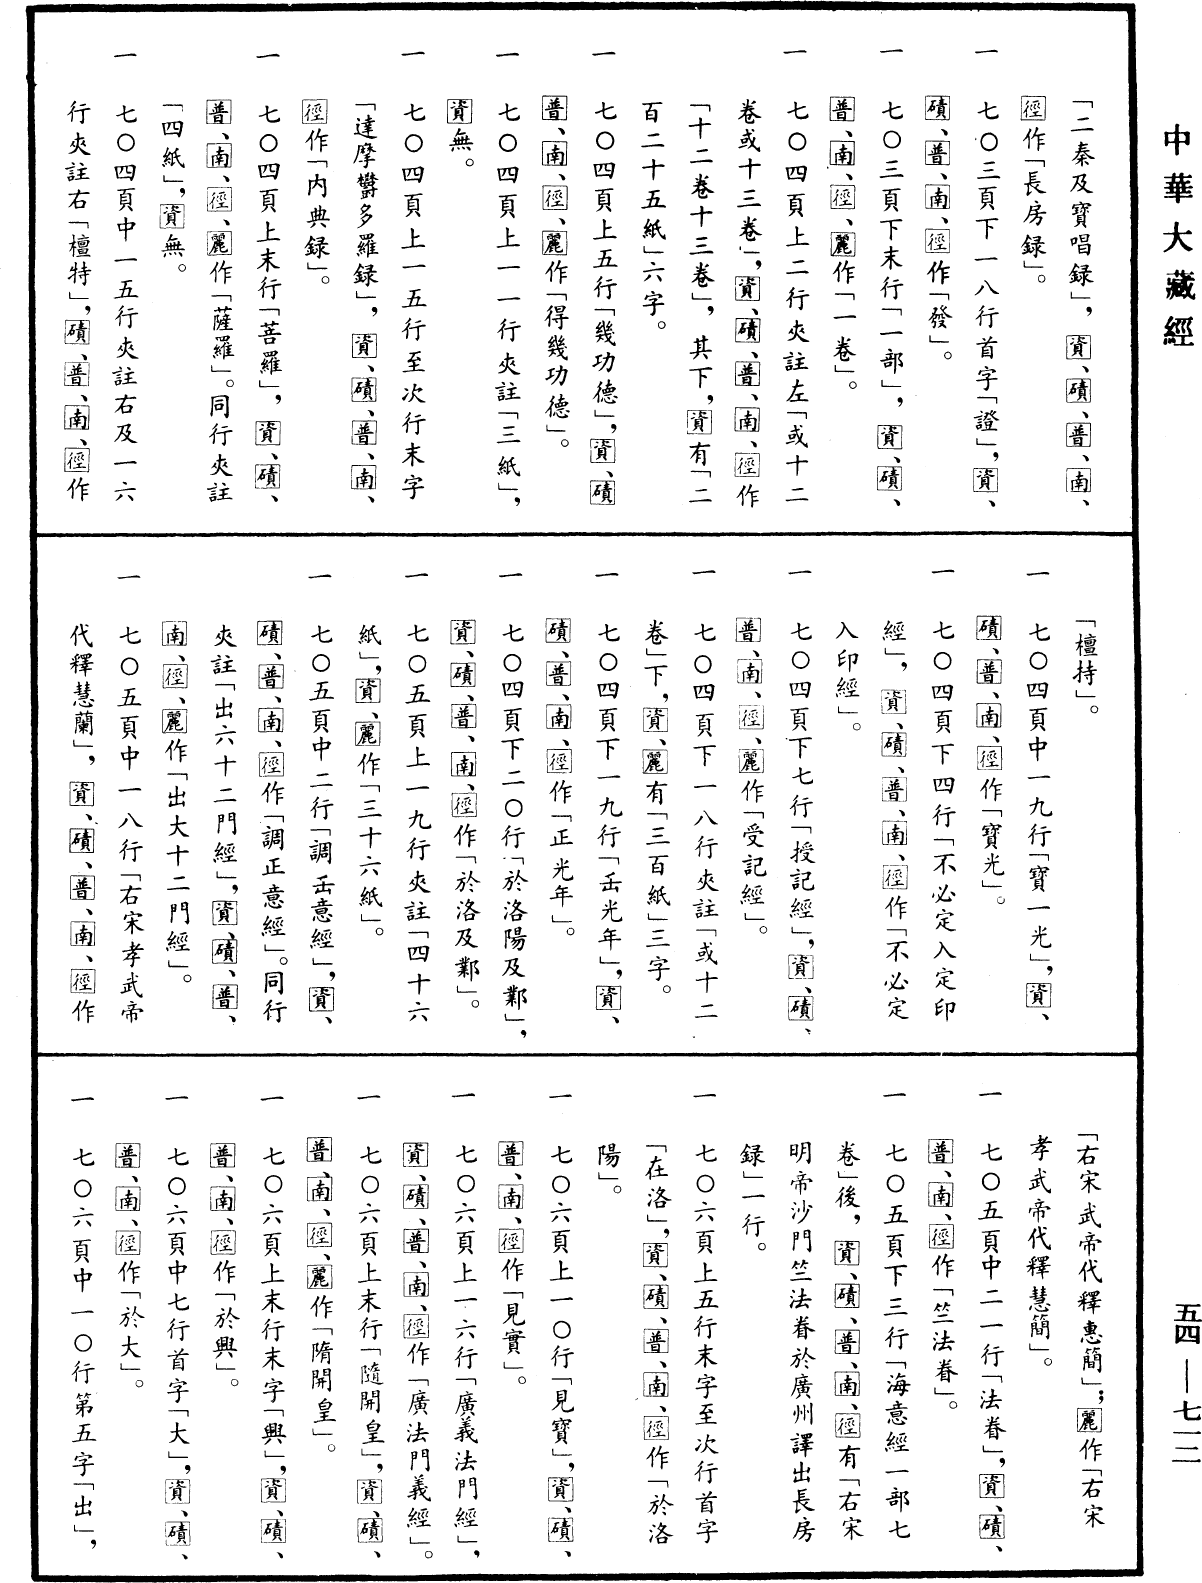 中華大藏經
「二秦及寶唱録」，資、磧、普、南、
徑作「長房録」。
一　七〇三頁下一八行首字「證」，資、
磧、普、南、徑作「發」。
一　七〇三頁下末行「一部」，資、磧、
普、南、徑、麗作「一卷」。
一　七〇四頁上二行夾註左「或十二
卷或十三卷」，資、磧、普、南、徑作
「十二卷十三卷」，其下，資有「二
百二十五紙」六字。
一　七〇四頁上五行「幾功德」，資、磧
普、南、徑、麗作「得幾功德」。
一　七〇四頁上一一行夾註「三紙」，
資無。
一　七〇四頁上一五行至次行末字
「達摩欝多羅録」，資、磧、普、南、
徑作「内典録」。
一　七〇四頁上末行「菩羅」，資、磧、
普、南、徑、麗作「薩羅」。同行夾註
「四紙」，資無。
一　七〇四頁中一五行夾註右及一六
行夾註右「檀特」，磧、普、南、徑作
「檀持」。
一　七〇四頁中一九行「寶一光」，資、
磧、普、南、徑作「寶光」。
一　七〇四頁下四行「不必定入定印
經」，資、磧、普、南、徑作「不必定
入印經」。
一　七〇四頁下七行「授記經」，資、磧、
普、南、徑、麗作「受記經」。
一　七〇四頁下一八行夾註「或十二
卷」下，資、麗有「三百紙」三字。
一　七〇四頁下一九行「𠙺光年」，資、
磧、普、南、徑作「正光年」。
一　七〇四頁下二〇行「於洛陽及鄴」，
資、磧、普、南、徑作「於洛及鄴」。
一　七〇五頁上一九行夾註「四十六
紙」，資、麗作「三十六紙」。
一　七〇五頁中二行「調𠙺意經」，資、
磧、普、南、徑作「調正意經」。同行
夾註「出六十二門經」，資、磧、普、
南、徑、麗作「出大十二門經」。
一　七〇五頁中一八行「右宋孝武帝
代釋慧蘭」，資、磧、普、南、徑作
「右宋武帝代釋惠簡」；麗作「右宋
孝武帝代釋慧簡」。
一　七〇五頁中二一行「法眷」，資、磧、
普、南、徑作「竺法眷」。
一　七〇五頁下三行「海意經一部七
卷」後，資、磧、普、南、徑有「右宋
明帝沙門竺法眷於廣州譯出長房
録」一行。
一　七〇六頁上五行末字至次行首字
「在洛」，資、磧、普、南、徑作「於洛
陽」。
一　七〇六頁上一〇行「見寶」，資、磧、
普、南、徑作「見實」。
一　七〇六頁上一六行「廣義法門經」，
資、磧、普、南、徑作「廣法門義經」。
一　七〇六頁上末行「隨開皇」，資、磧、
普、南、徑、麗作「隋開皇」。
一　七〇六頁上末行末字「興」，資、磧、
普、南、徑作「於興」。
一　七〇六頁中七行首字「大」，資、磧、
普、南、徑作「於大」。
一　七〇六頁中一〇行第五字「出」，
五四—七一二